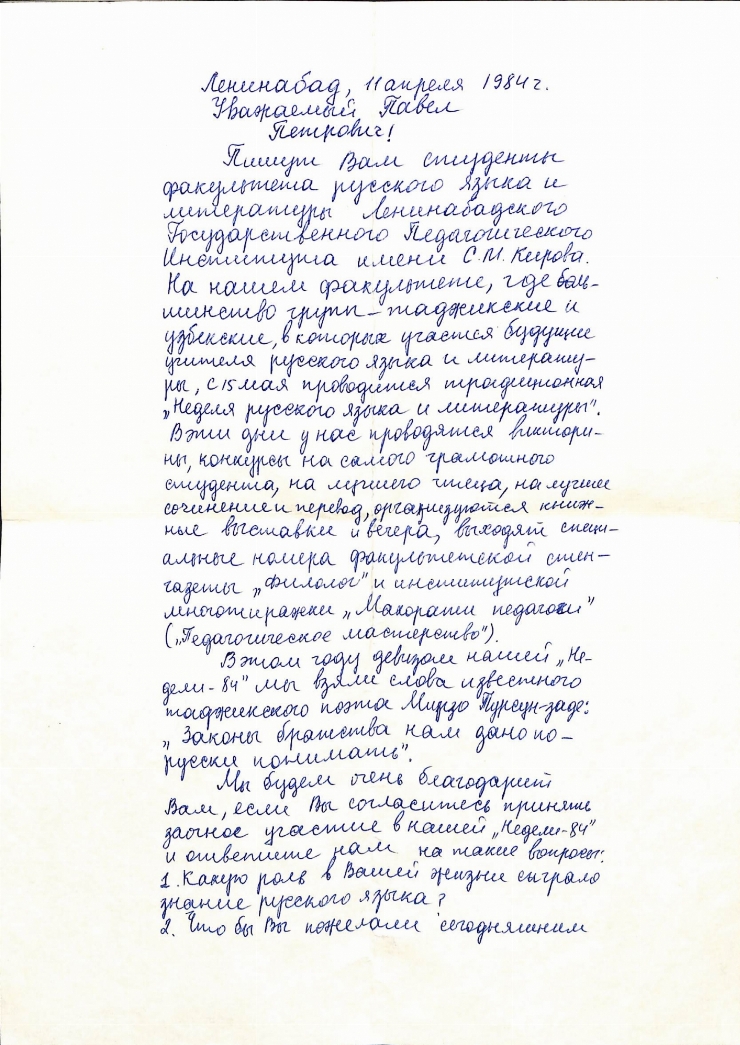 Ленинабад, 11 апреля 1984 г.
Уважаемый Павел
Петрович!
Пишут Вам студенты
факультета русского языка и
литературы Ленинабадского
Государственного Педагогического
Института имени С.М. Кирова.
На нашем факультете, где боль-
шинство групп – таджикские и
узбекские, в которых учатся будущие
учителя русского языка и литерату-
ры, с 15 мая проводится традиционная
„Неделя русского языка и литературы".
В эти дни у нас проводятся виктори-
ны, конкурсы на самого грамотного
студента, на лучшего чтеца, на лучшее
сочинение и перевод, организуются книж-
ные выставки и вечера, выходят специ-
альные номера факультетской стен-
газеты „Филолог" и институтской
многотиражки „Махорати педагоги"
(„Педагогическое мастерство").
В этом году девизом нашей „Не-
дели-84" мы взяли слова известного
таджикского поэта Мирзо Турсун-заде:
„Законы братства нам дано по-
русски понимать".
Мы будем очень благодарны
Вам, если Вы согласитесь принять
заочное участие в нашей „Недели-84"
и ответите нам на такие вопросы:
1. Какую роль в Вашей жизни сыграло
знание русского языка?
2. Что бы Вы пожелали сегодняшним